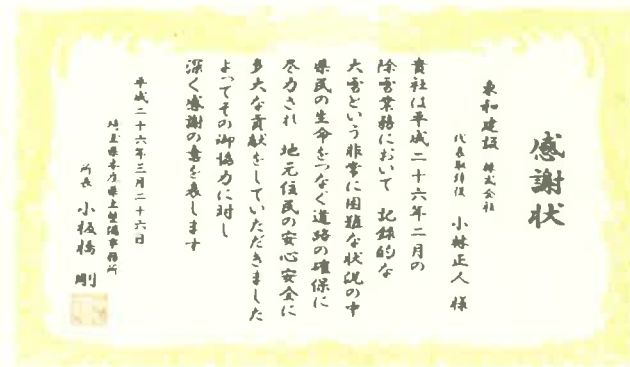 感謝状
東和建設 株式会社
代表取締役 小林正人 様
貴社は平成二十六年二月の
除雪業務において 記録的な
大雪という非常に困難な状況の中
県民の生命をつなぐ道路の確保に
尽力され 地元住民の安心安全に
多大な貢献をしていただきました
よってその御協力に対し
深く感謝の意を表します
平成二十六年三月二十六日
埼玉県本庄県土整備事務所
所長 小板橋 剛